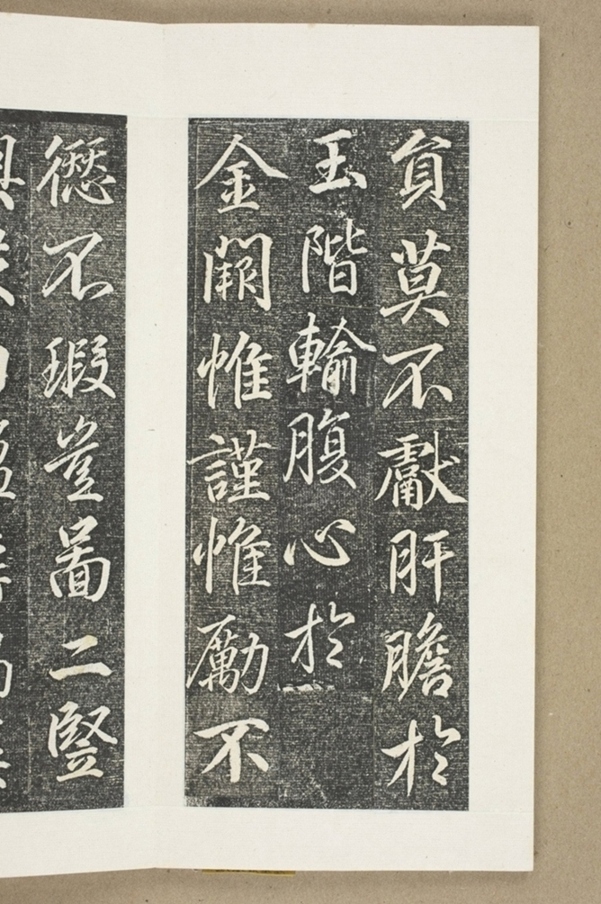 貟莫不獻肝膽於
玉階輸腹心於
金闕惟謹惟勵不
愆不瑕豈啚二竪